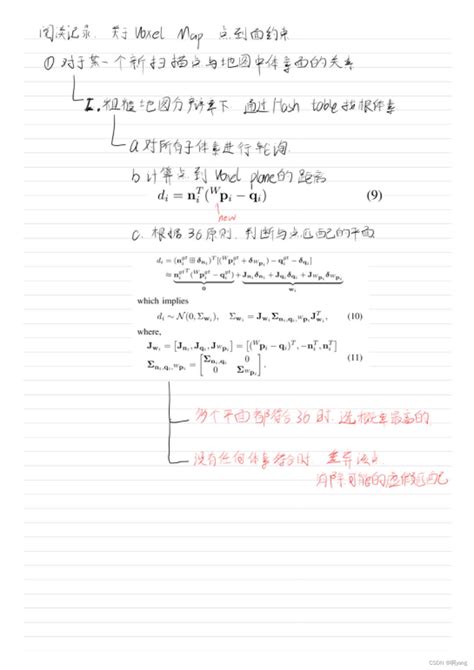 阅读记录 关于Voxel Map 点到面约束
① 对于某一个新扫描点与地图中体素面的关系
I. 粗糙地图分辨率下 通过Hash table找根体素
a 对所有子体素进行轮询
b 计算点到Voxel plane的距离
d_i = n_i^T(^W p_i − q_i) (9)
new
c. 根据3σ原则 判断与点匹配的平面
d_i = (n_i^{gt} ⊞ δ_{n_i})^T[(^W p_i^{gt} + δ_{^W p_i}) − q_i^{gt} − δ_{q_i}]
≈ n_i^{gt T}(^W p_i^{gt} − q_i^{gt}) + J_{n_i}δ_{n_i} + J_{q_i}δ_{q_i} + J_{^W p_i}δ_{^W p_i}
0 w_i
which implies
d_i ∼ N(0, Σ_{w_i}), Σ_{w_i} = J_{w_i}Σ_{n_i,q_i,^W p_i}J_{w_i}^T, (10)
where,
J_{w_i} = [J_{n_i}, J_{q_i}, J_{^W p_i}] = [(^W p_i − q_i)^T, −n_i^T, n_i^T]
Σ_{n_i,q_i,^W p_i} = [Σ_{n_i,q_i} 0; 0 Σ_{^W p_i}], (11)
多个平面都符合3σ时 选概率最高的
没有任何体素符合时 丢弃该点
消除可能的虚假匹配
CSDN